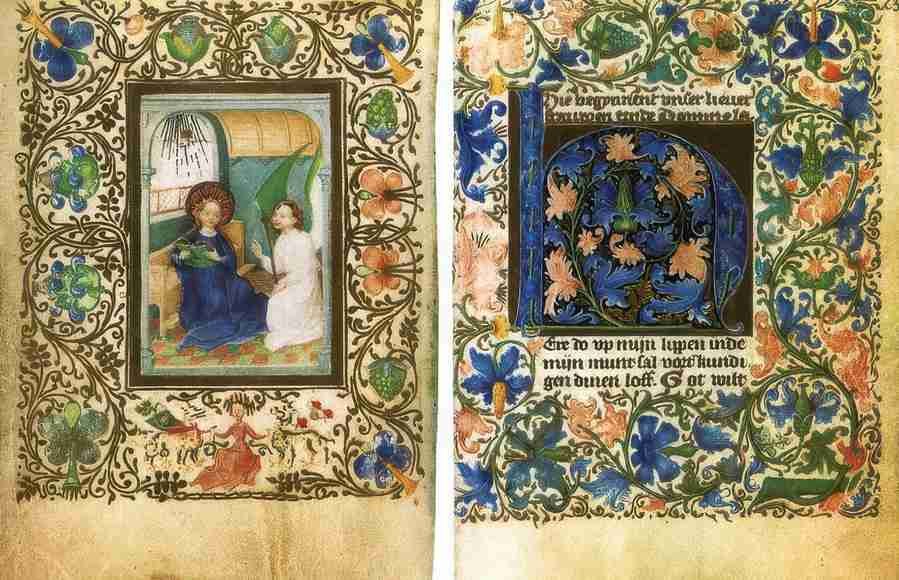 Hie begynnent unser liever
frauwen ende Dommels
Ere do up mijn lippen unde
mijn munt sal vort kundi
gen dinen loff. Got wilt